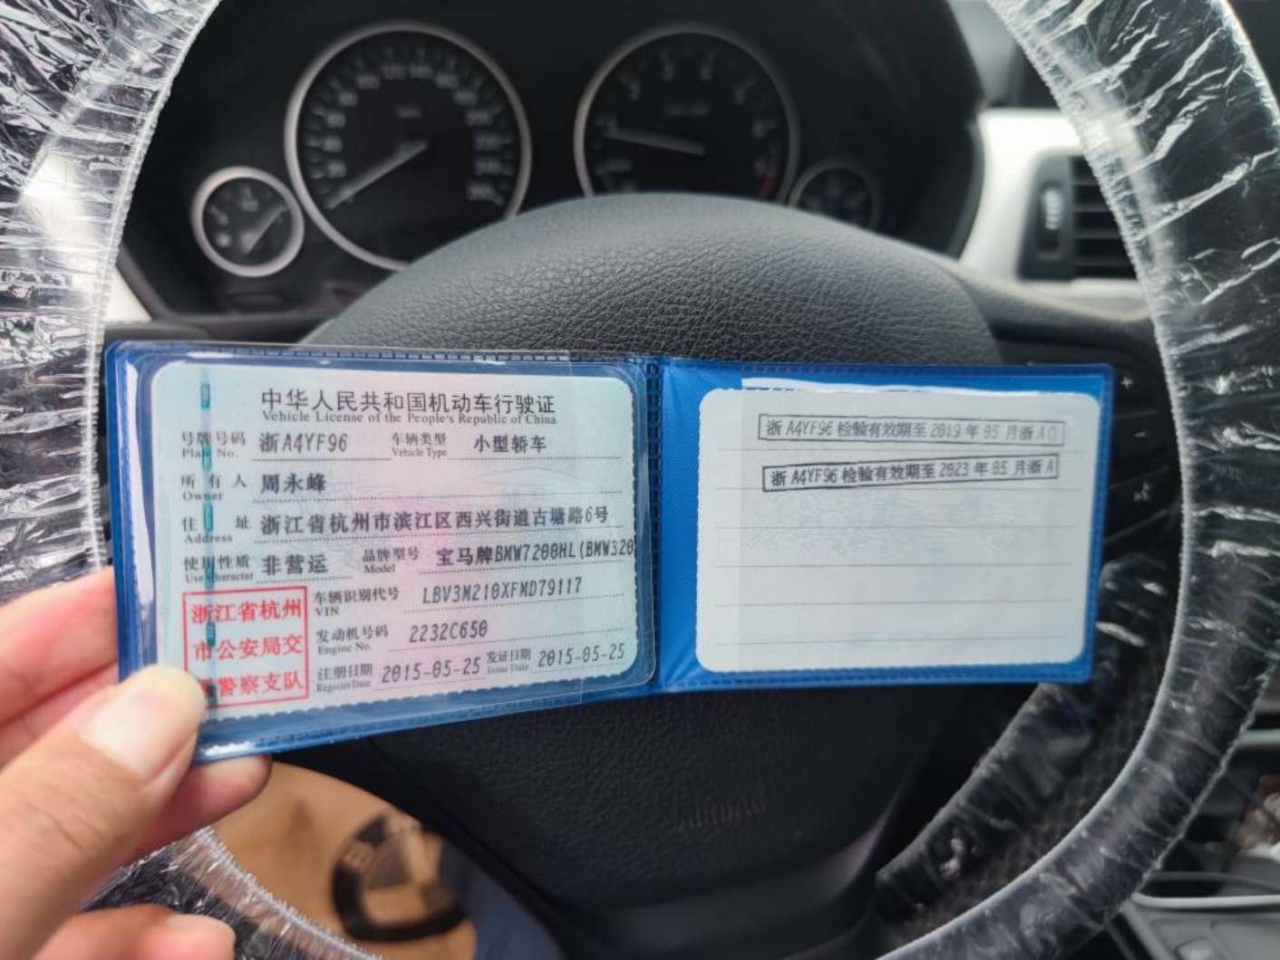 中华人民共和国机动车行驶证
Vehicle License of the People's Republic of China
号牌号码 浙A4YF96 车辆类型 小型轿车
Plate No. Vehicle Type
所有人 周永峰
Owner
住址 浙江省杭州市滨江区西兴街道古塘路6号
Address
使用性质 非营运 品牌型号 宝马牌BMW7200HL(BMW320
Use Character Model
浙江省杭州
市公安局交
警察支队
车辆识别代号 LBV3M210XFMD79117
VIN
发动机号码 2232C650
Engine No.
注册日期 2015-05-25 发证日期 2015-05-25
Register Date Issue Date
浙A4YF96检验有效期至2019年05月浙A
浙A4YF96检验有效期至2023年05月浙A